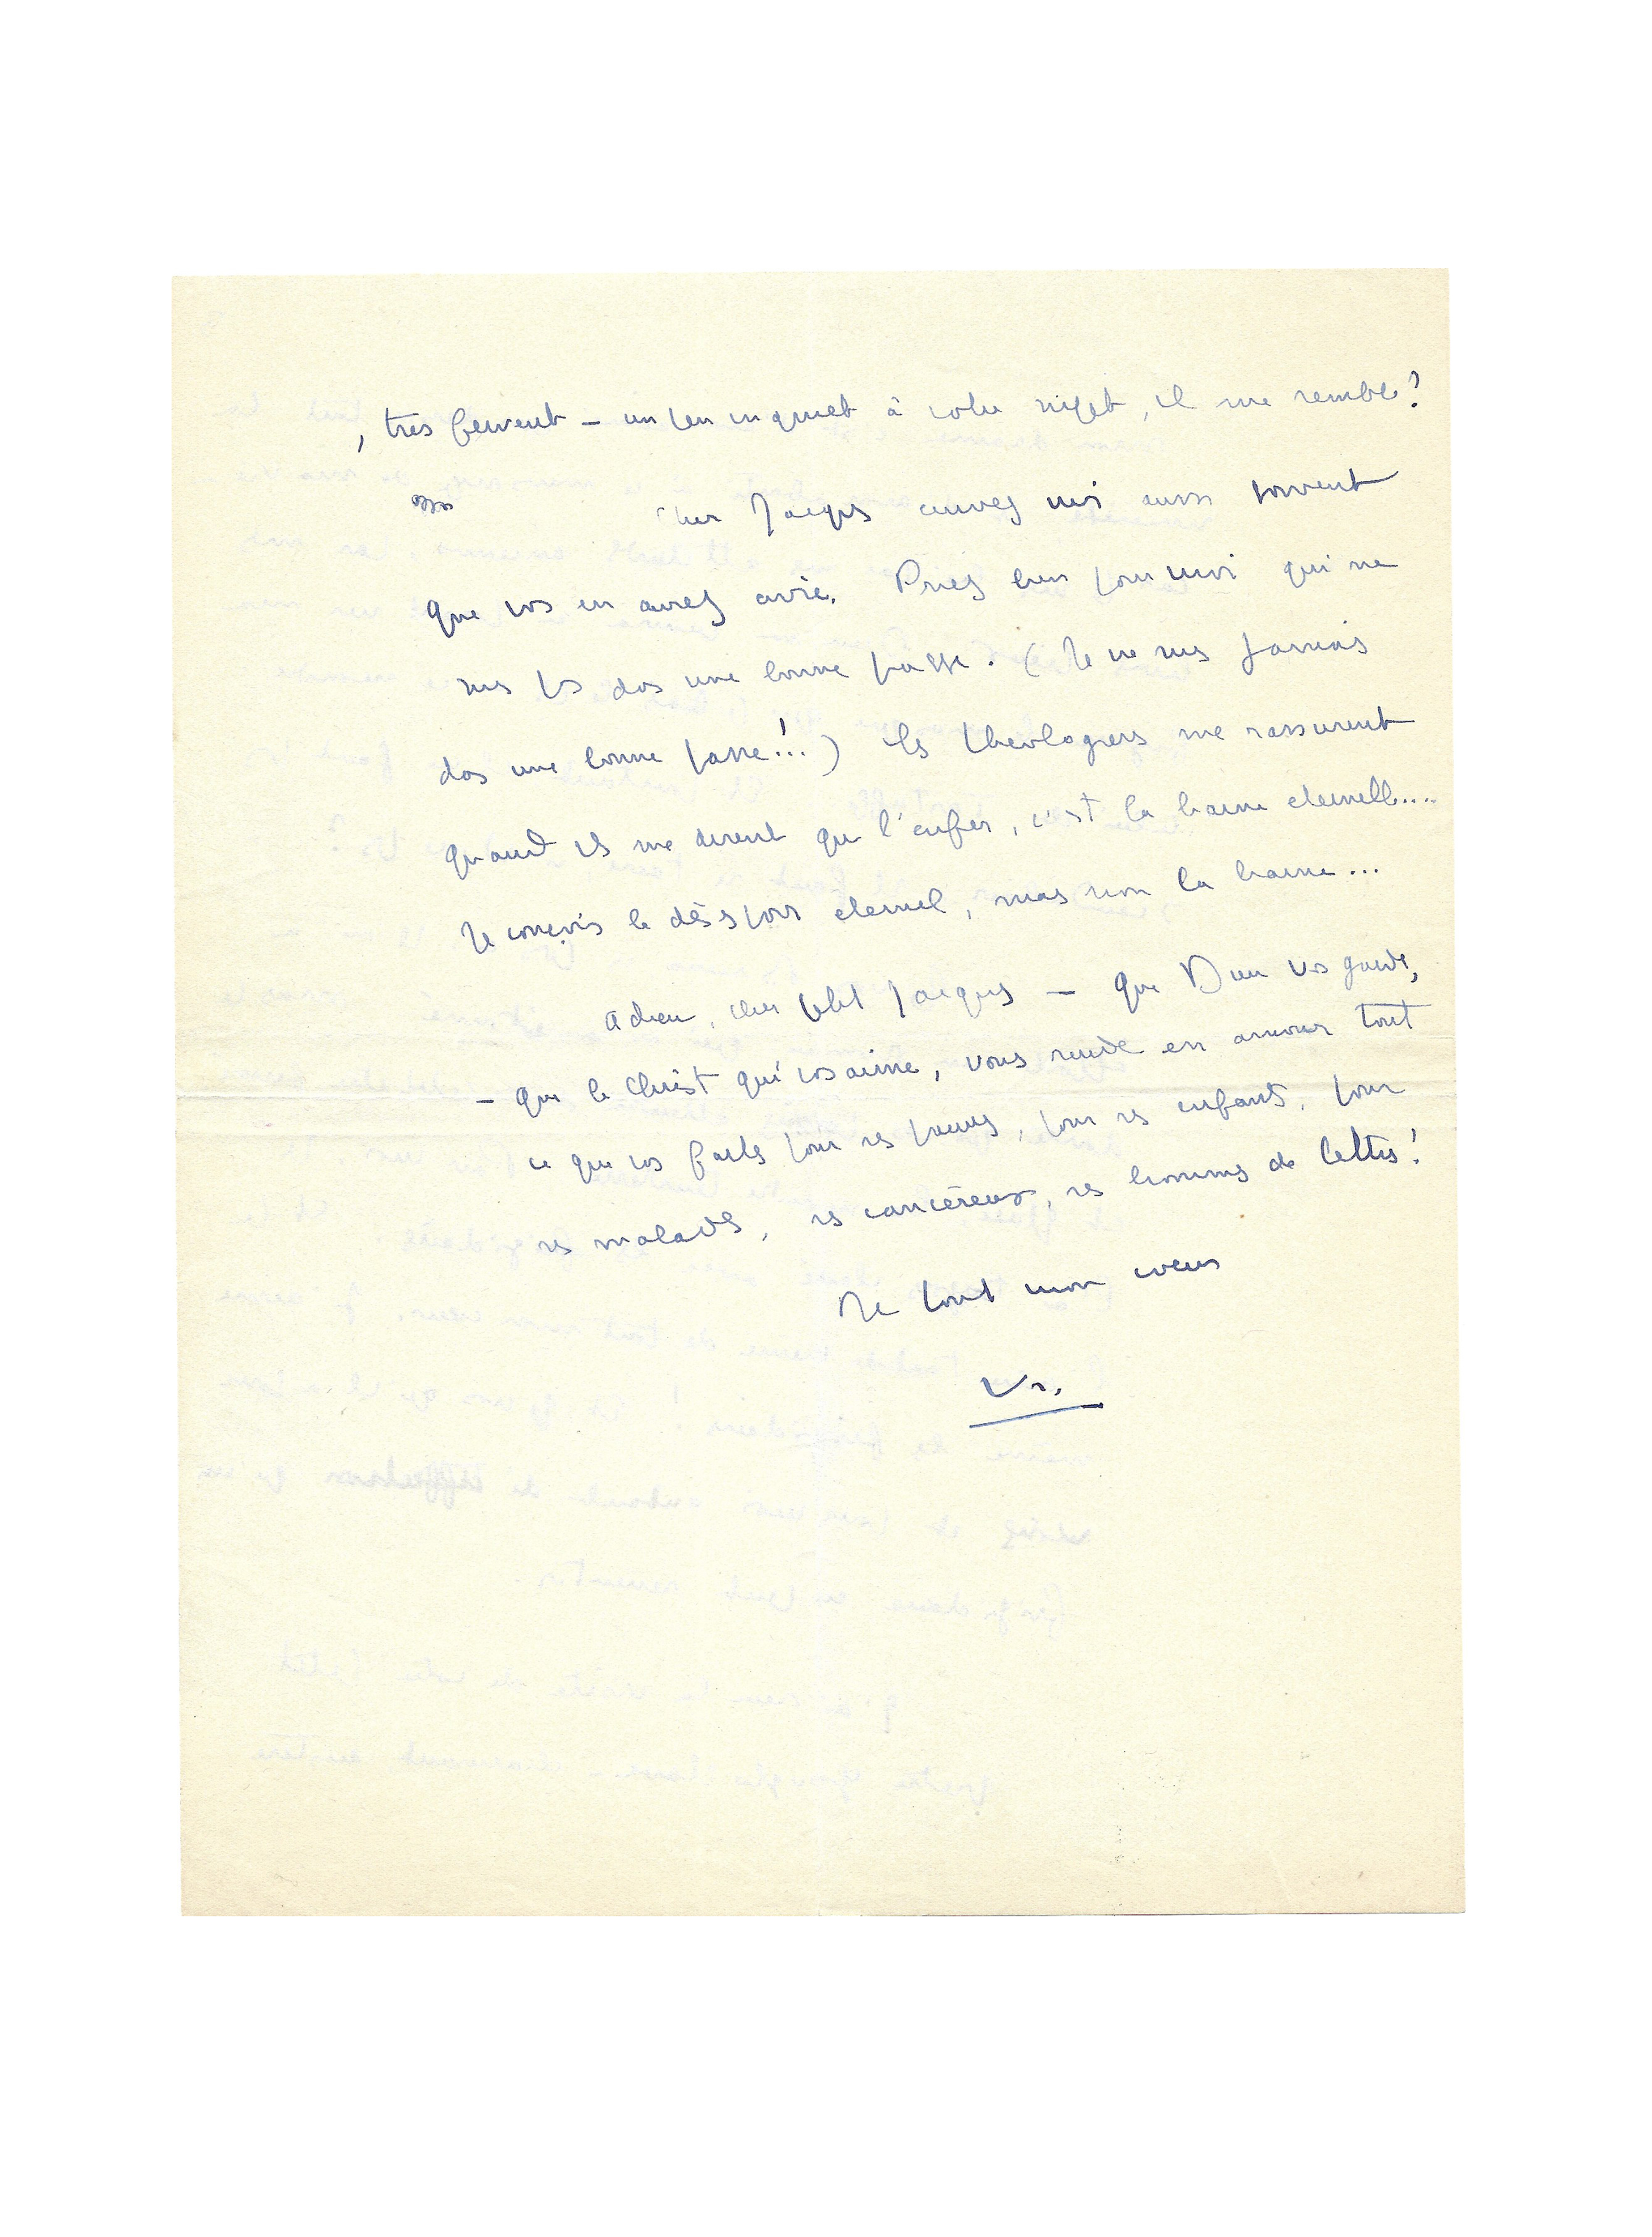 , très fervent – un peu inquiet à votre sujet, il me semble?
Cher Jacques écrivez moi aussi souvent
que vos en aurez envie. Priez bien pour moi qui ne
suis ps das une bonne passe. (Je ne suis jamais
das une bonne passe!..) Les théologiens me rassurent
quand ils me disent que l'enfer, c'est la haine éternelle....
Je conçois le désespoir éternel, mais non la haine...
Adieu, cher petit Jacques – que Dieu vos garde,
– que le Christ qui vos aime, vous rende en amour tout
ce que vos faites pour ses pauvres, pour ses enfants, pour
ses malades, ses cancéreux, ses hommes de lettres!
De tout mon coeur